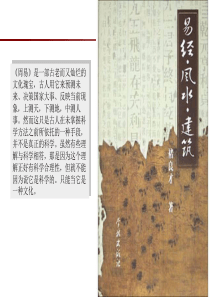 《周易》是一部古老而又灿烂的
文化瑰宝，古人用它来预测未
来、决策国家大事、反映当前现
象，上测天，下测地，中测人
事。然而这只是古人在未掌握科
学方法之前所依托的一种手段，
并不是真正的科学。虽然有些理
解与科学相符，那是因为这个理
解正好有科学合理性，但就不能
因为而说它是科学的。只能当它是
一种文化。
易经·风水·建筑
褚良才 著
学林出版社